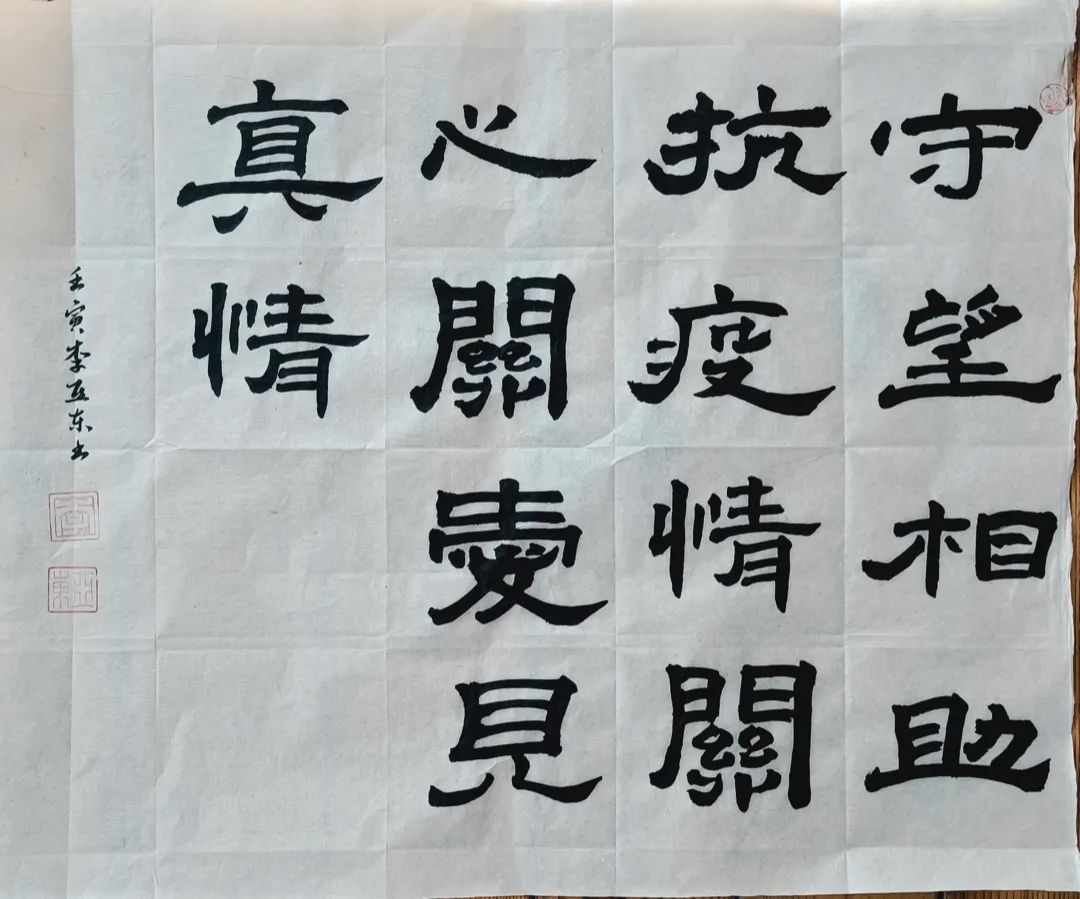 守望相助
抗疫情關
心關愛見
真情
壬寅李亞东书